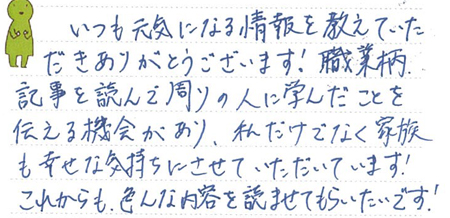 いつも元気になる情報を教えていた
だきありがとうございます！職業柄、
記事を読んで周りの人に学んだことを
伝える機会があり、私だけでなく家族
も幸せな気持ちにさせていただいています！
これからも、色んな内容を読ませてもらいたいです！